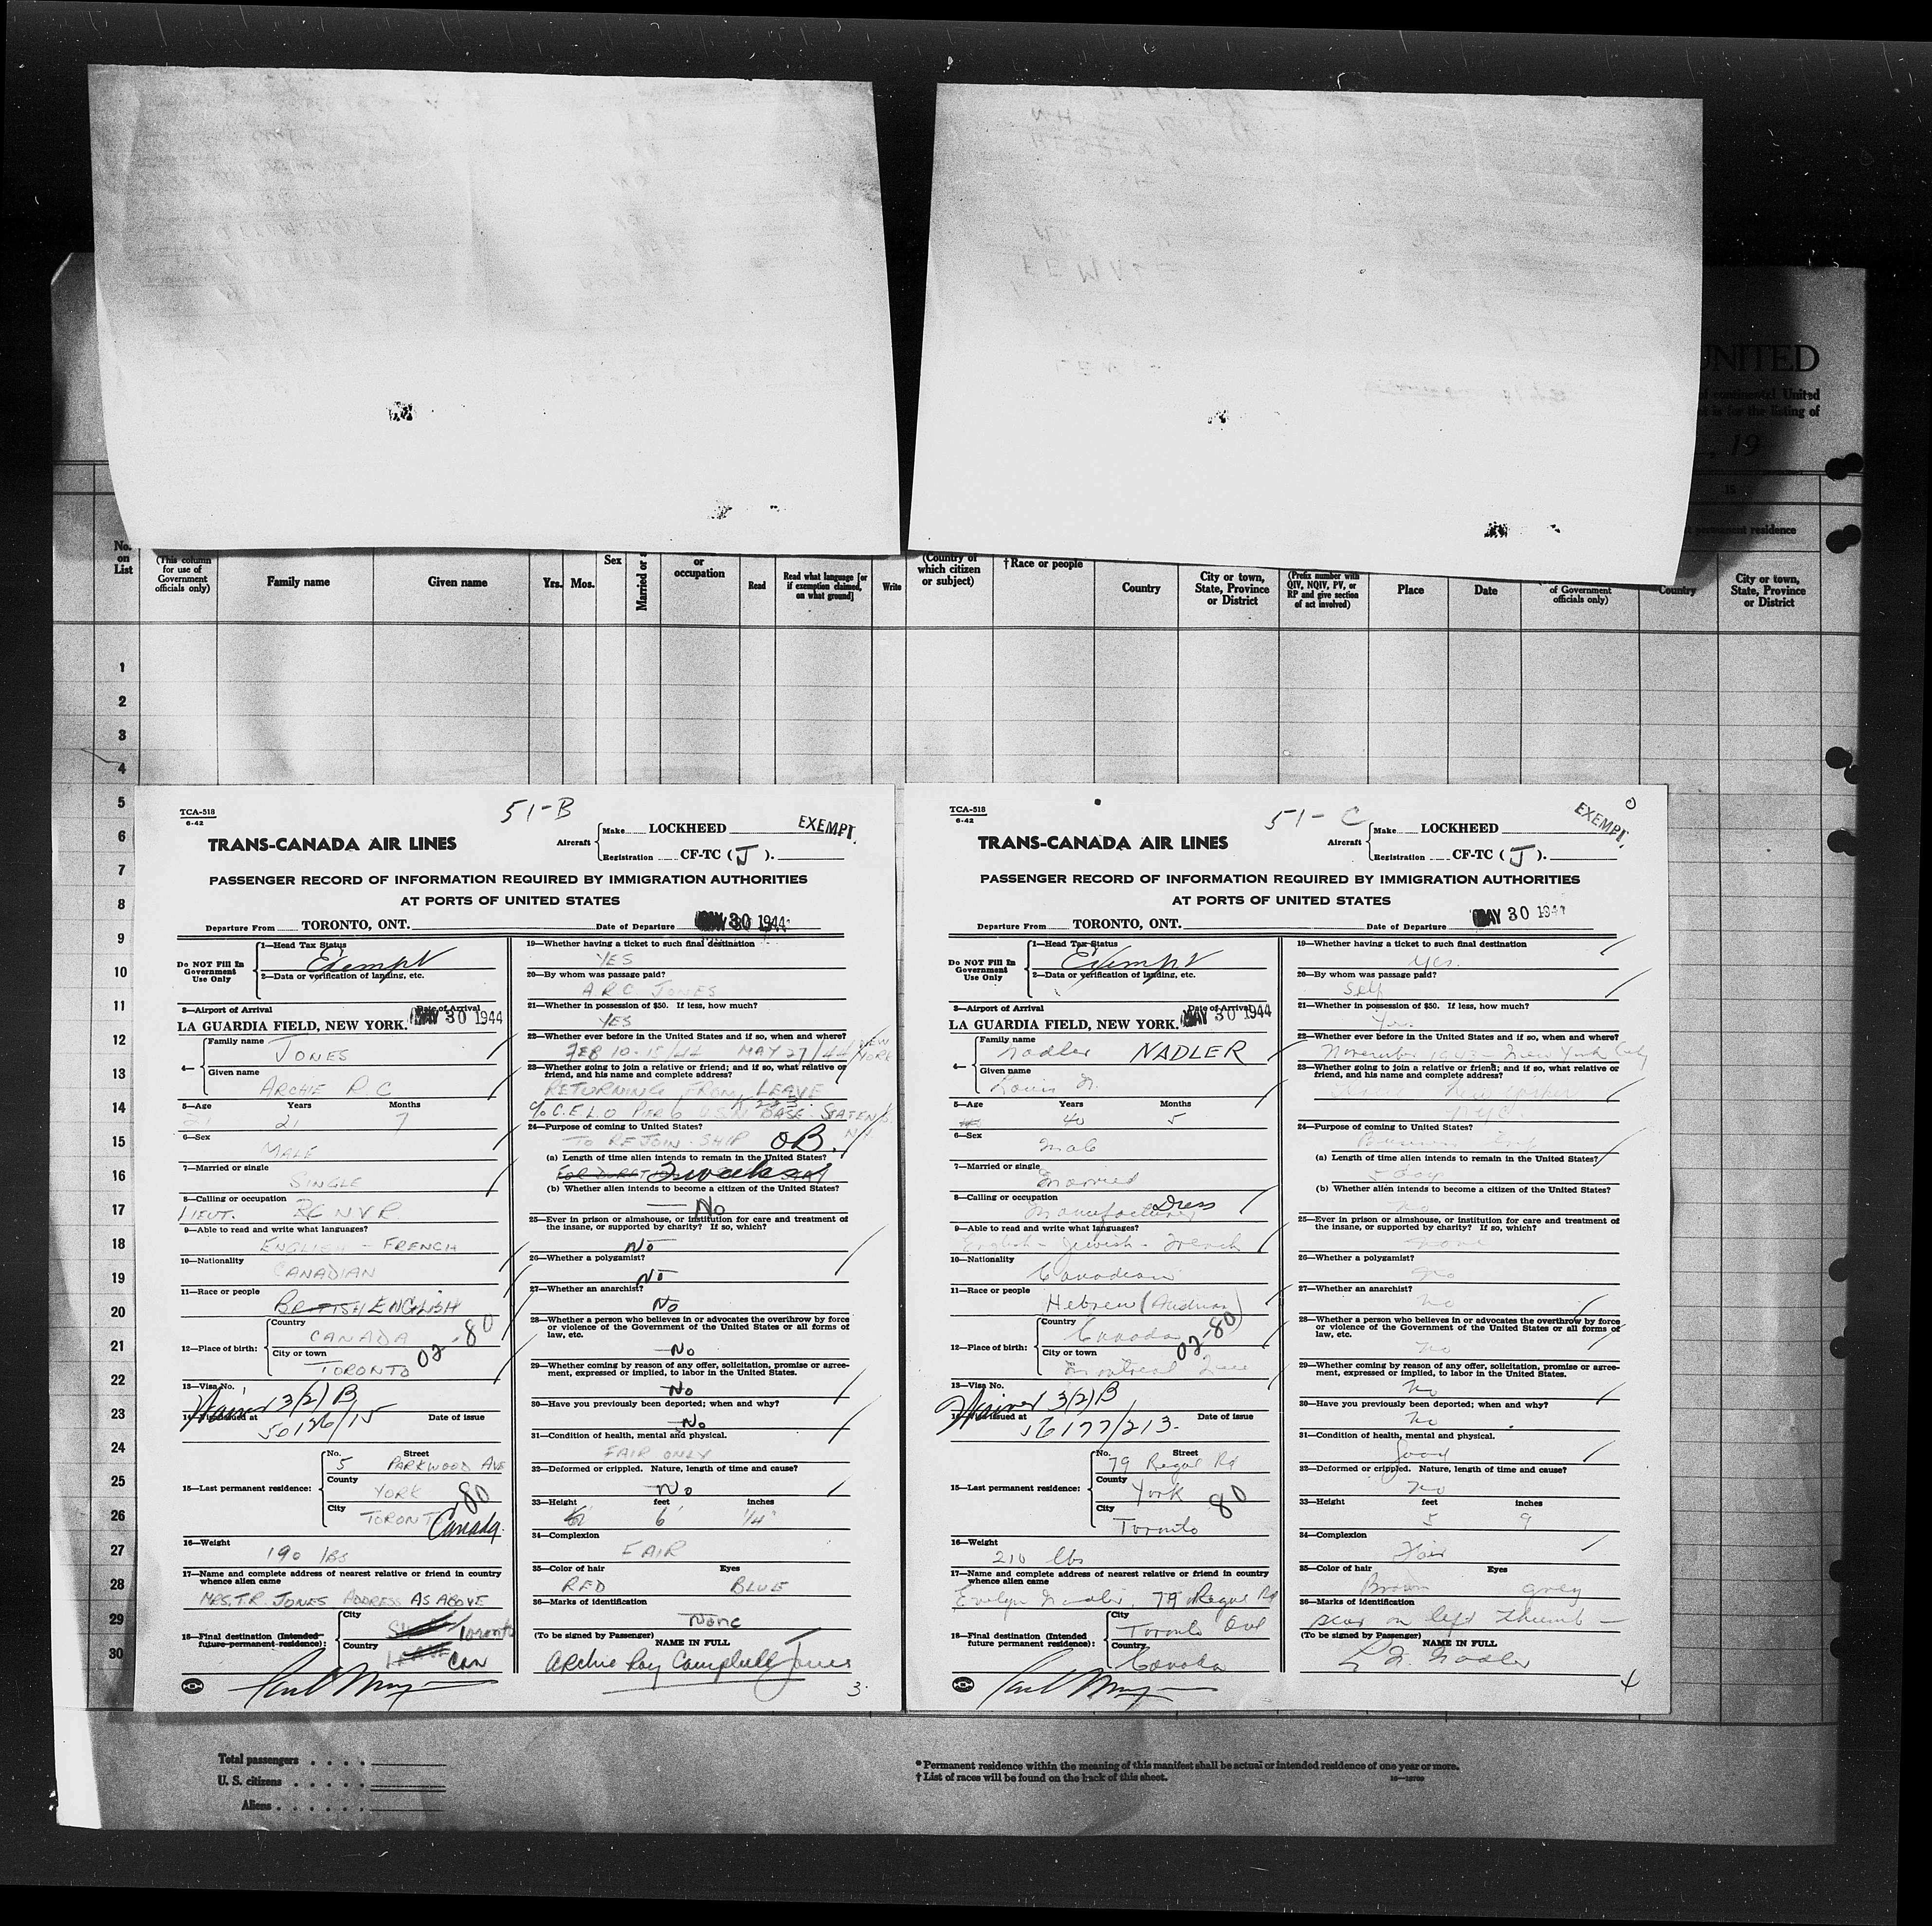 UNITED
of continental United
is for the listing of
, 19
permanent residence
No. on List
(This column for use of Government officials only)
Family name
Given name
Yrs.
Mos.
Sex
Married or
or occupation
Read
Read what language [or if exemption claimed, on what ground]
Write
(Country of which citizen or subject)
†Race or people
Country
City or town, State, Province or District
(Prefix number with QIV, NQIV, PV, or RP and give section of act involved)
Place
Date
of Government officials only)
Country
City or town, State, Province or District
1
2
3
4
5
6
7
8
9
10
11
12
13
14
15
16
17
18
19
20
21
22
23
24
25
26
27
28
29
30
TCA-518
6-42
51-B
EXEMPT.
TRANS-CANADA AIR LINES
Aircraft
Make LOCKHEED
Registration CF-TC (J).
PASSENGER RECORD OF INFORMATION REQUIRED BY IMMIGRATION AUTHORITIES
AT PORTS OF UNITED STATES
Departure From TORONTO, ONT.
Date of Departure MAY 30 1944
Do NOT Fill In Government Use Only
1—Head Tax Status
Exempt
2—Data or verification of landing, etc.
3—Airport of Arrival
Date of Arrival
LA GUARDIA FIELD, NEW YORK. MAY 30 1944
4—
Family name
JONES
Given name
ARCHIE R.C
5—Age Years Months
21 7
6—Sex
MALE
7—Married or single
SINGLE
8—Calling or occupation
LIEUT. RCNVR
9—Able to read and write what languages?
ENGLISH - FRENCH
10—Nationality
CANADIAN
11—Race or people
BRITISH ENGLISH
12—Place of birth:
Country
CANADA
City or town
TORONTO
02-80
13—Visa No.
Waiver 3(2)B
14—Visa issued at Date of issue
56126/15
15—Last permanent residence:
No. Street
5 PARKWOOD AVE
County
YORK
City
TORONTO Canada.
80
16—Weight
190 lbs
17—Name and complete address of nearest relative or friend in country whence alien came
MRS. T.R. JONES ADDRESS AS ABOVE
18—Final destination (Intended future permanent residence):
City
Toronto
Country
CAN
19—Whether having a ticket to such final destination
YES
20—By whom was passage paid?
A.R.C JONES
21—Whether in possession of $50. If less, how much?
YES
22—Whether ever before in the United States and if so, when and where?
FEB 10-15/44 MAY 27/44 NEW YORK
23—Whether going to join a relative or friend; and if so, what relative or friend, and his name and complete address?
RETURNING FROM LEAVE
c/o C.E.L.O PIER 6 U.S.N BASE STATEN
24—Purpose of coming to United States?
TO REJOIN SHIP OB.
(a) Length of time alien intends to remain in the United States?
2 weeks
(b) Whether alien intends to become a citizen of the United States?
No
25—Ever in prison or almshouse, or institution for care and treatment of the insane, or supported by charity? If so, which?
No
26—Whether a polygamist?
No
27—Whether an anarchist?
No
28—Whether a person who believes in or advocates the overthrow by force or violence of the Government of the United States or all forms of law, etc.
No
29—Whether coming by reason of any offer, solicitation, promise or agreement, expressed or implied, to labor in the United States.
No
30—Have you previously been deported; when and why?
No
31—Condition of health, mental and physical.
FAIR ONLY
32—Deformed or crippled. Nature, length of time and cause?
No
33—Height feet inches
6' 1/4"
34—Complexion
FAIR
35—Color of hair Eyes
RED BLUE
36—Marks of identification
None
(To be signed by Passenger)
NAME IN FULL
Archie Roy Campbell Jones
3
TCA-518
6-42
51-C
EXEMPT.
TRANS-CANADA AIR LINES
Aircraft
Make LOCKHEED
Registration CF-TC (J).
PASSENGER RECORD OF INFORMATION REQUIRED BY IMMIGRATION AUTHORITIES
AT PORTS OF UNITED STATES
Departure From TORONTO, ONT.
Date of Departure MAY 30 1944
Do NOT Fill In Government Use Only
1—Head Tax Status
Exempt
2—Data or verification of landing, etc.
3—Airport of Arrival
Date of Arrival
LA GUARDIA FIELD, NEW YORK. MAY 30 1944
4—
Family name
Nadler NADLER
Given name
Louis N.
5—Age Years Months
40 5
6—Sex
Male
7—Married or single
Married
8—Calling or occupation
Dress Manufacturer
9—Able to read and write what languages?
English - Jewish - French
10—Nationality
Canadian
11—Race or people
Hebrew
12—Place of birth:
Country
Canada
City or town
Montreal Que
02-80
13—Visa No.
Waiver 3(2)B
14—Visa issued at Date of issue
56177/213-
15—Last permanent residence:
No. Street
79 Regal Rd
County
York
City
Toronto
80
16—Weight
210 lbs
17—Name and complete address of nearest relative or friend in country whence alien came
Evelyn Nadler, 79 Regal Rd
18—Final destination (Intended future permanent residence):
City
Toronto Ont
Country
Canada
19—Whether having a ticket to such final destination
Yes.
20—By whom was passage paid?
Self
21—Whether in possession of $50. If less, how much?
Yes
22—Whether ever before in the United States and if so, when and where?
November 1943 - New York City
23—Whether going to join a relative or friend; and if so, what relative or friend, and his name and complete address?
NYC.
24—Purpose of coming to United States?
Business
(a) Length of time alien intends to remain in the United States?
5 day
(b) Whether alien intends to become a citizen of the United States?
No
25—Ever in prison or almshouse, or institution for care and treatment of the insane, or supported by charity? If so, which?
None
26—Whether a polygamist?
No
27—Whether an anarchist?
No
28—Whether a person who believes in or advocates the overthrow by force or violence of the Government of the United States or all forms of law, etc.
No
29—Whether coming by reason of any offer, solicitation, promise or agreement, expressed or implied, to labor in the United States.
No
30—Have you previously been deported; when and why?
No
31—Condition of health, mental and physical.
Good
32—Deformed or crippled. Nature, length of time and cause?
No
33—Height feet inches
5 9
34—Complexion
Fair
35—Color of hair Eyes
Brown grey
36—Marks of identification
scar on left thumb —
(To be signed by Passenger)
NAME IN FULL
L N. Nadler
4
Total passengers
U. S. citizens
Aliens
* Permanent residence within the meaning of this manifest shall be actual or intended residence of one year or more.
† List of races will be found on the back of this sheet.